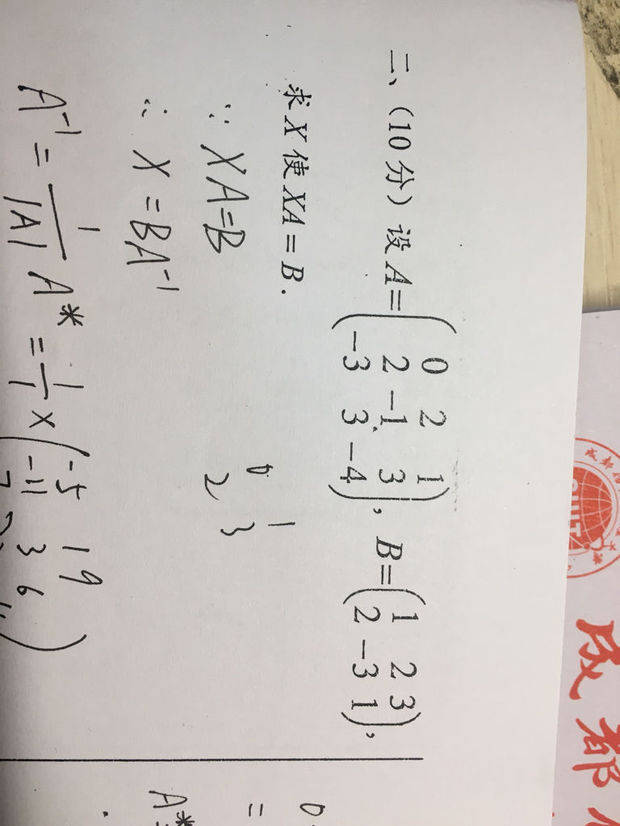 二、(10 分) 设 A = ( 0 2 1
2 -1 3
-3 3 -4 ), B = ( 1 2 3
2 -3 1 ),
求 X 使 XA = B.
∵ XA=B
∴ X = BA⁻¹
A⁻¹ = 1/|A| A* = 1/1 × ( -5 19
-11 3 6
0 1
2 3
=
A*
成都